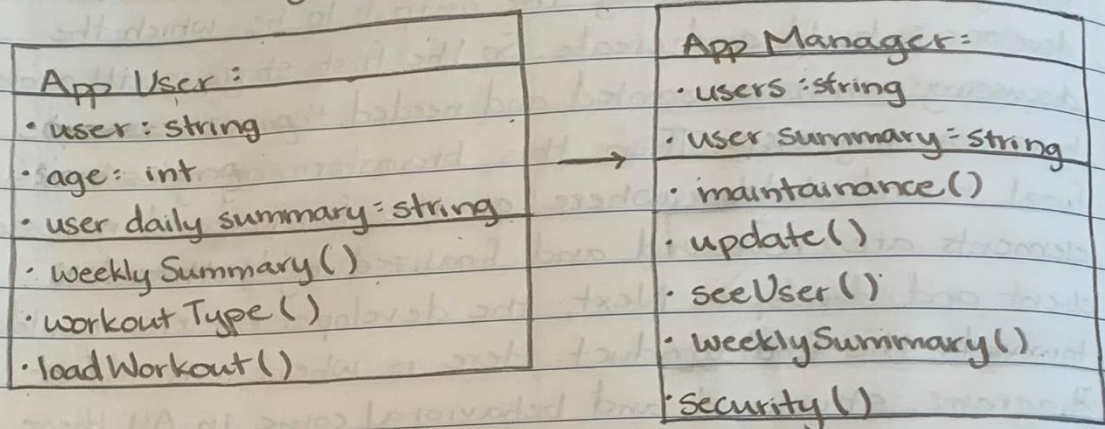 App User:
• user: string
• age: int
• user daily summary: string
• weekly Summary()
• workout Type()
• load Workout()
App Manager:
• users: string
• user summary: string
• maintainance()
• update()
• seeUser()
• weeklySummary()
• security()